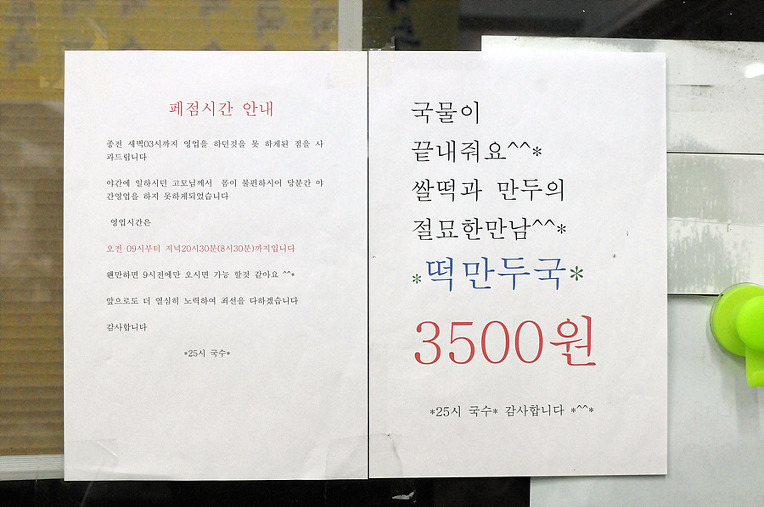 페점시간 안내
종전 새벽03시까지 영업을 하던것을 못 하게된 점을 사
과드립니다
야간에 일하시던 고모님께서 몸이 불편하시어 당분간 야
간영업을 하지 못하게되었습니다
영업시간은
오전 09시부터 저녁20시30분(8시30분)까지입니다
웬만하면 9시전에만 오시면 가능 할것 같아요 ^^*
앞으로도 더 열심히 노력하여 최선을 다하겠습니다
감사합니다
*25시 국수*
국물이
끝내줘요^^*
쌀떡과 만두의
절묘한만남^^*
*떡만두국*
3500원
*25시 국수* 감사합니다 *^^*